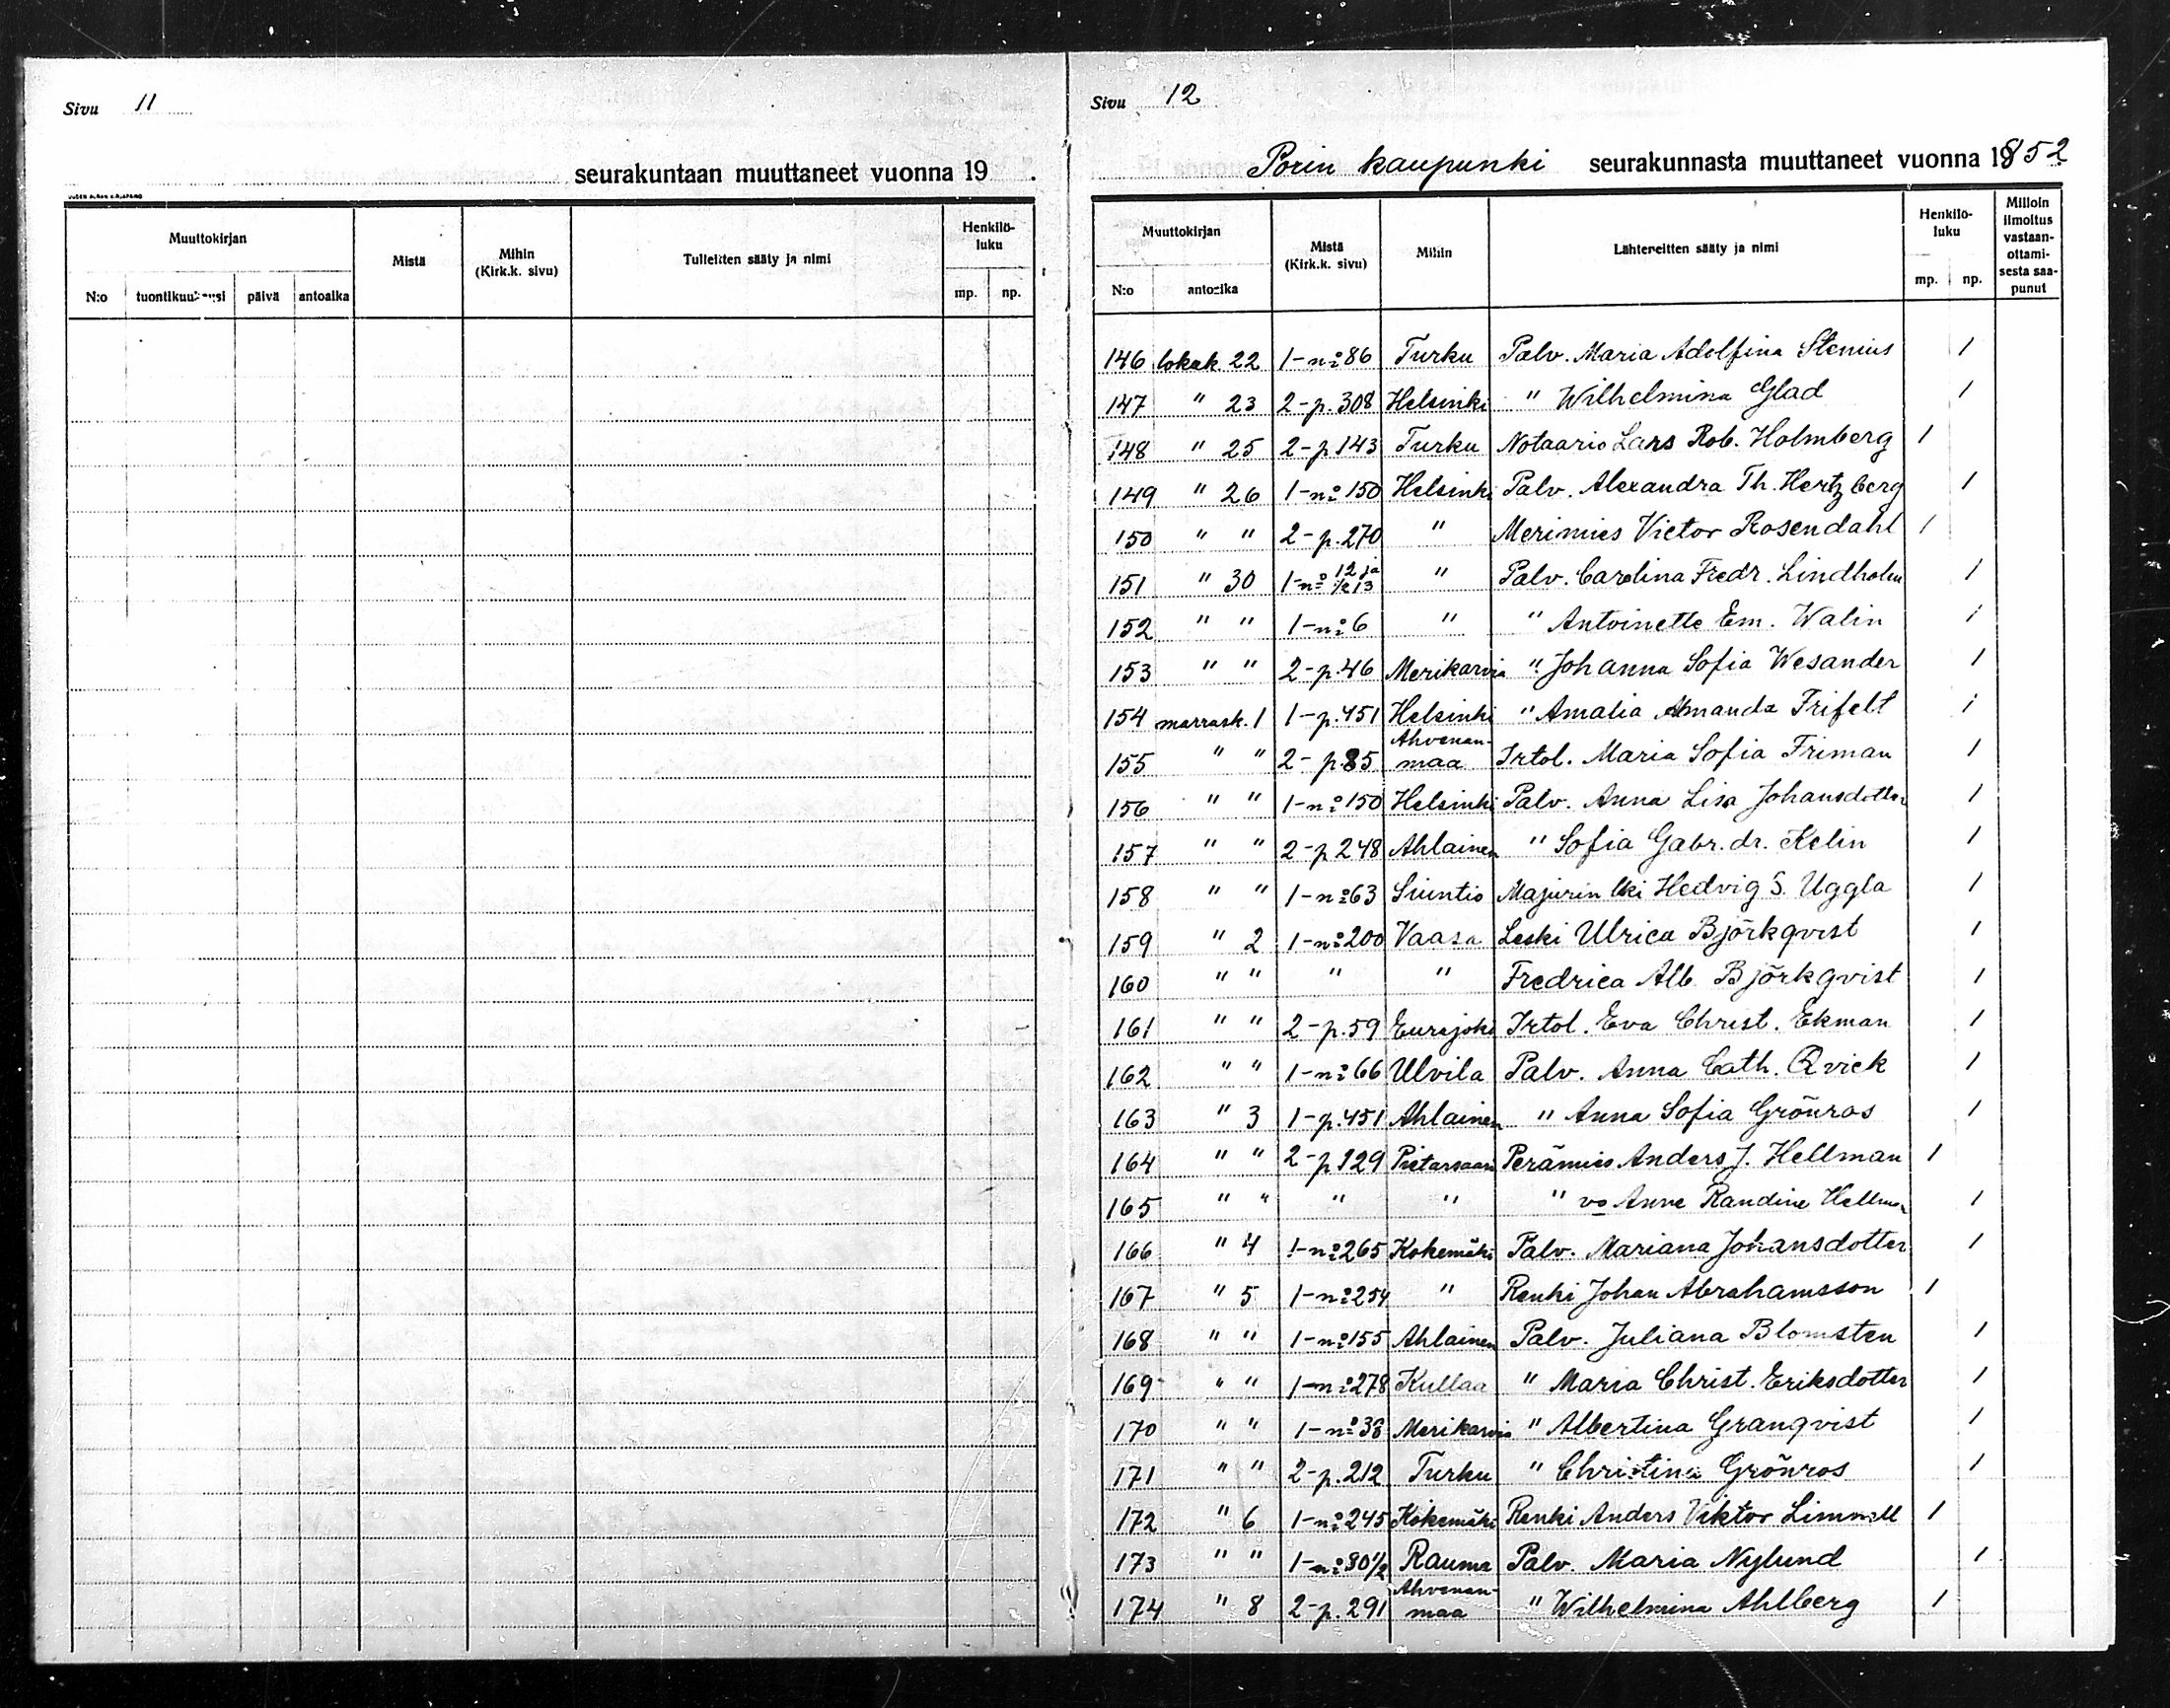 Sivu 11
seurakuntaan muuttaneet vuonna 19
UUDEN AURAN KIRJAPAINO
Muuttokirjan
N:o tuontikuukausi päivä antoaika
Mistä
Mihin
(Kirk.k. sivu)
Tulleitten sääty ja nimi
Henkilö-
luku
mp. np.
Sivu 12
Porin kaupunki seurakunnasta muuttaneet vuonna 1852
Muuttokirjan
N:o antoaika
Mistä
(Kirk.k. sivu)
Mihin
Lähteneitten sääty ja nimi
Henkilö-
luku
mp. np.
Milloin
ilmoitus
vastaan-
ottami-
sesta saa-
punut
146 lokak. 22 1-n:o 86 Turku Palv. Maria Adolfina Stenius 1
147 " 23 2-p. 308 Helsinki " Wilhelmina Glad 1
148 " 25 2-p 143 Turku Notaario Lars Rob. Holmberg 1
149 " 26 1-n:o 150 Helsinki Palv. Alexandra Th. Hertzberg 1
150 " " 2-p. 270 " Merimies Victor Rosendahl 1
151 " 30 1-n:o 12 ja ½ 13 " Palv. Carolina Fredr. Lindholm 1
152 " " 1-n:o 6 " " Antoinette Em. Walin 1
153 " " 2-p. 46 Merikarvia " Johanna Sofia Wesander 1
154 marrask. 1 1-p. 451 Helsinki " Amalia Amanda Frifelt 1
155 " " 2-p. 85 Ahvenanmaa Irtol. Maria Sofia Friman 1
156 " " 1-n:o 150 Helsinki Palv. Anna Lisa Johansdotter 1
157 " " 2-p 248 Ahlainen " Sofia Gabr. dr. Kelin 1
158 " " 1-n:o 63 Siuntio Majurin lki Hedvig S. Uggla 1
159 " 2 1-n:o 200 Vaasa Leski Ulrica Björkqvist 1
160 " " " " Fredrica Alb. Björkqvist 1
161 " " 2-p. 59 Eurajoki Irtol. Eva Christ. Ekman 1
162 " " 1-n:o 66 Ulvila Palv. Anna Cath. Qvick 1
163 " 3 1-p. 451 Ahlainen " Anna Sofia Grönros 1
164 " " 2-p 129 Pietarsaari Perämies Anders J. Hellman 1
165 " " " " " vo Anne Randine Hellman 1
166 " 4 1-n:o 265 Kokemäki Palv. Mariana Johansdotter 1
167 " 5 1-n:o 254 " Renki Johan Abrahamsson 1
168 " " 1-n:o 155 Ahlainen Palv. Juliana Blomsten 1
169 " " 1-n:o 278 Kullaa " Maria Christ. Eriksdotter 1
170 " " 1-n:o 38 Merikarvia " Albertina Granqvist 1
171 " " 2-p. 212 Turku " Christina Grönros 1
172 " 6 1-n:o 245 Kokemäki Renki Anders Viktor Limnell 1
173 " " 1-n:o 80½ Rauma Palv. Maria Nylund 1
174 " 8 2-p. 291 Ahvenanmaa " Wilhelmina Ahlberg 1